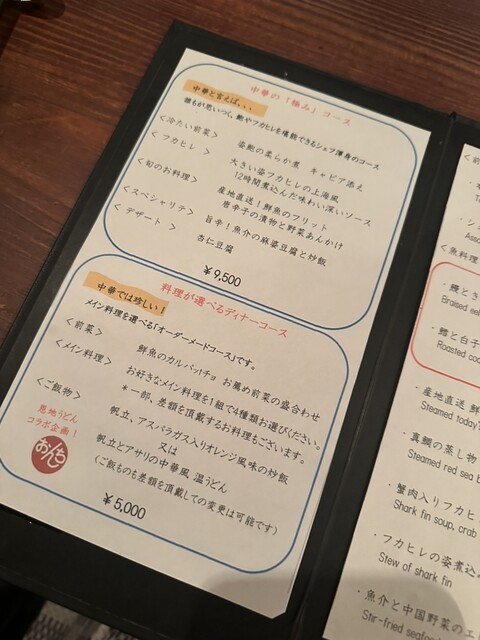 中華の「極み」コース
中華と言えば、、、
誰もが思いつく、鮑やフカヒレを堪能できるシェフ渾身のコース
<冷たい前菜>
姿鮑の柔らか煮 キャビア添え
<フカヒレ>
大きい姿フカヒレの上海風
12時間煮込んだ味わい深いソース
<旬のお料理>
産地直送！鮮魚のフリット
唐辛子の漬物と野菜あんかけ
<スペシャリテ>
旨辛！魚介の麻婆豆腐と炒飯
<デザート>
杏仁豆腐
￥9,500
料理が選べるディナーコース
中華では珍しい！
メイン料理を選べる「オーダーメードコース」です。
<前菜>
鮮魚のカルパッチョ お薦め前菜の盛合わせ
<メイン料理>
お好きなメイン料理を1組で4種類お選びください。
＊一部、差額を頂戴するお料理もございます。
<ご飯物>
帆立、アスパラガス入りオレンジ風味の炒飯
又は
帆立とアサリの中華風、温うどん
(ご飯ものも差額を頂戴しての変更は可能です)
恩地うどん
コラボ企画！
おんち
￥5,000
<前
Asso
<魚料理
・鰻とき
Braised eel
・鱈と白子
Roasted cod
・産地直送 鮮
Steamed today's
・真鯛の蒸し物
Steamed red sea b
・蟹肉入りフカヒ
Shark fin soup, crab
・フカヒレの姿煮込
Stew of shark fin
・魚介と中国野菜のエ
Stir-fried seafood